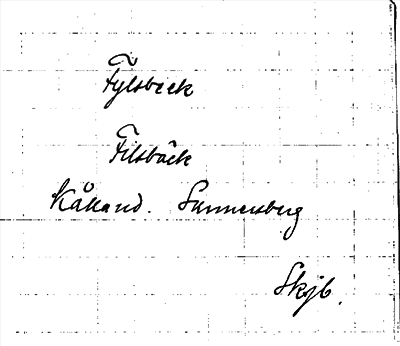 Fylsbeck
Filsbäck
Kålland. Sunnersberg
Skjb.